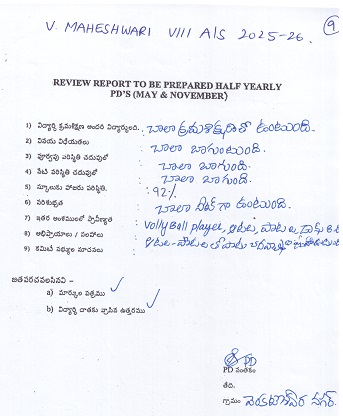 V. MAHESHWARI VIII A/S 2025-26. 9
REVIEW REPORT TO BE PREPARED HALF YEARLY
PD'S (MAY & NOVEMBER)
1) విద్యార్థి క్రమశిక్షణ అందరి విద్యార్థులది. : చాలా క్రమశిక్షణతో ఉంటుంది.
2) వినయ విధేయతలు : చాలా బాగుంటుంది.
3) పూర్వపు పరిస్థితి చదువులో : చాలా బాగుంది.
4) నేటి పరిస్థితి చదువులో : చాలా బాగుంది.
5) స్కూలుకు హాజరు పరిస్థితి. : 92%
6) పరిశుభ్రత : చాలా నీట్ గా ఉంటుంది.
7) ఇతర అంశములలో ప్రావీణ్యత : Volly Ball player, ఆటలు, పాటలు,
8) అభిప్రాయాలు / సలహాలు : ఆటల-పాటలతో పాటు
9) కమిటీ సభ్యుల సూచనలు
జతపరచవలసినవి -
a) మార్కుల పత్రము ✓
b) విద్యార్థి దాతకు వ్రాసిన ఉత్తరము ✓
PD
PD సంతకం
తేది.
గ్రామం వెంకటేశ్వర నగర్.